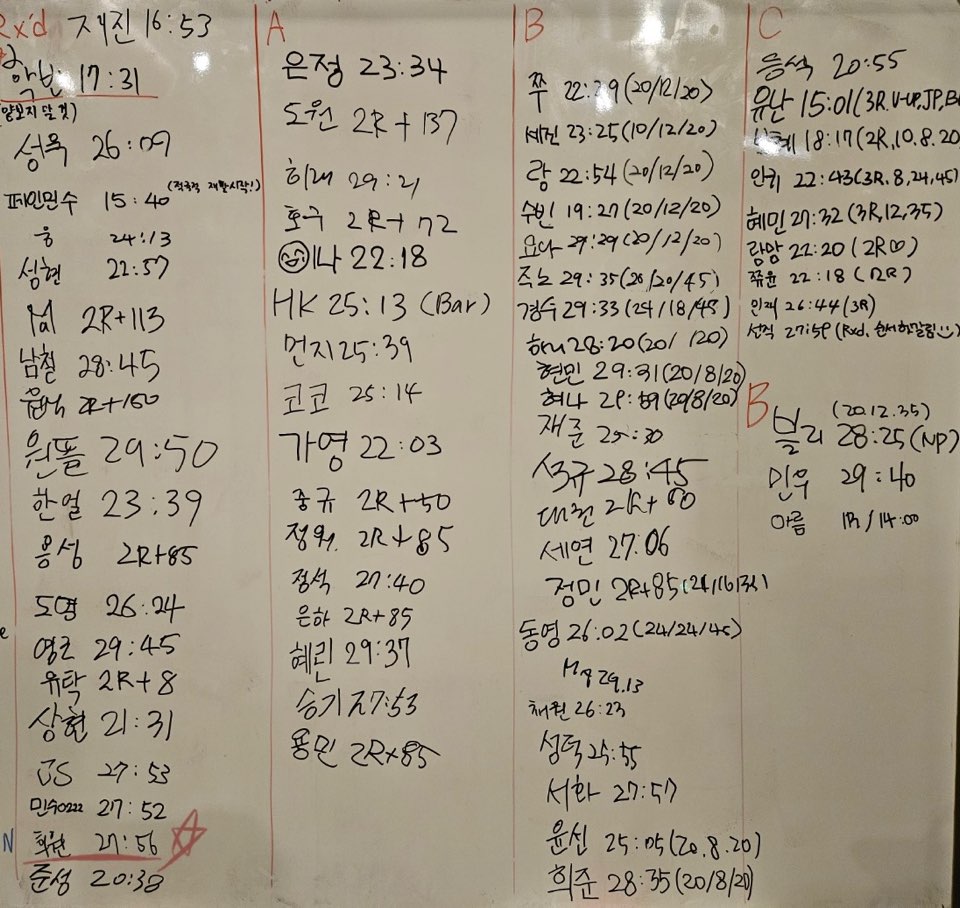 Rx'd 재진 16:53
17:31
(양보지 말 것)
성욱 26:09
페인민수 15:40 (적극적 재활시작!)
웅 24:13
성현 22:57
2R+113
남철 28:45
2R+150
원똘 29:50
한얼 23:39
용성 2R+85
도영 26:24
영근 29:45
유탁 2R+8
상현 21:31
JS 27:53
민수0222 27:52
N 희원 27:56
준성 20:38
A
은정 23:34
도원 2R+137
희래 29:21
호구 2R+72
나 22:18
HK 25:13 (Bar)
먼지 25:39
코코 25:14
가영 22:03
중규 2R+50
정워 2R+85
정석 27:40
은하 2R+85
혜린 29:37
승기 27:53
용민 2R+85
B
쭈 22:29 (20/12/20)
세진 23:25 (10/12/20)
랑 22:54 (20/12/20)
수빈 19:27 (20/12/20)
요다 29:29 (20/12/20)
주노 29:35 (20/20/45)
경수 29:33 (24/18/45)
하니 28:20 (20/ /20)
현민 29:31 (20/8/20)
혀나 (20/8/20)
재준 25:30
석규 28:45
대헌
세연 27:06
정민 2R+85
동영 26:02 (24/24/45)
29.13
채원 26:23
성덕 25:55
서화 27:57
윤신 25:05 (20.8.20)
희준 28:35 (20/8/20)
C
응석 20:55
유난 15:01 (3R.V-UP,JP,B
18:17 (2R,10.8.20
인키 22:43 (3R.8,24,45)
혜민 27:32 (3R,12,35)
랑망 22:20 (2R♡)
쭈윤 22:18 (12R)
인재 26:44 (3R)
선직 27:59 (Rxd, 순서헷갈림)
B
(20.12.35)
블리 28:25 (NP)
민우 29:40
아름 1R/14:00